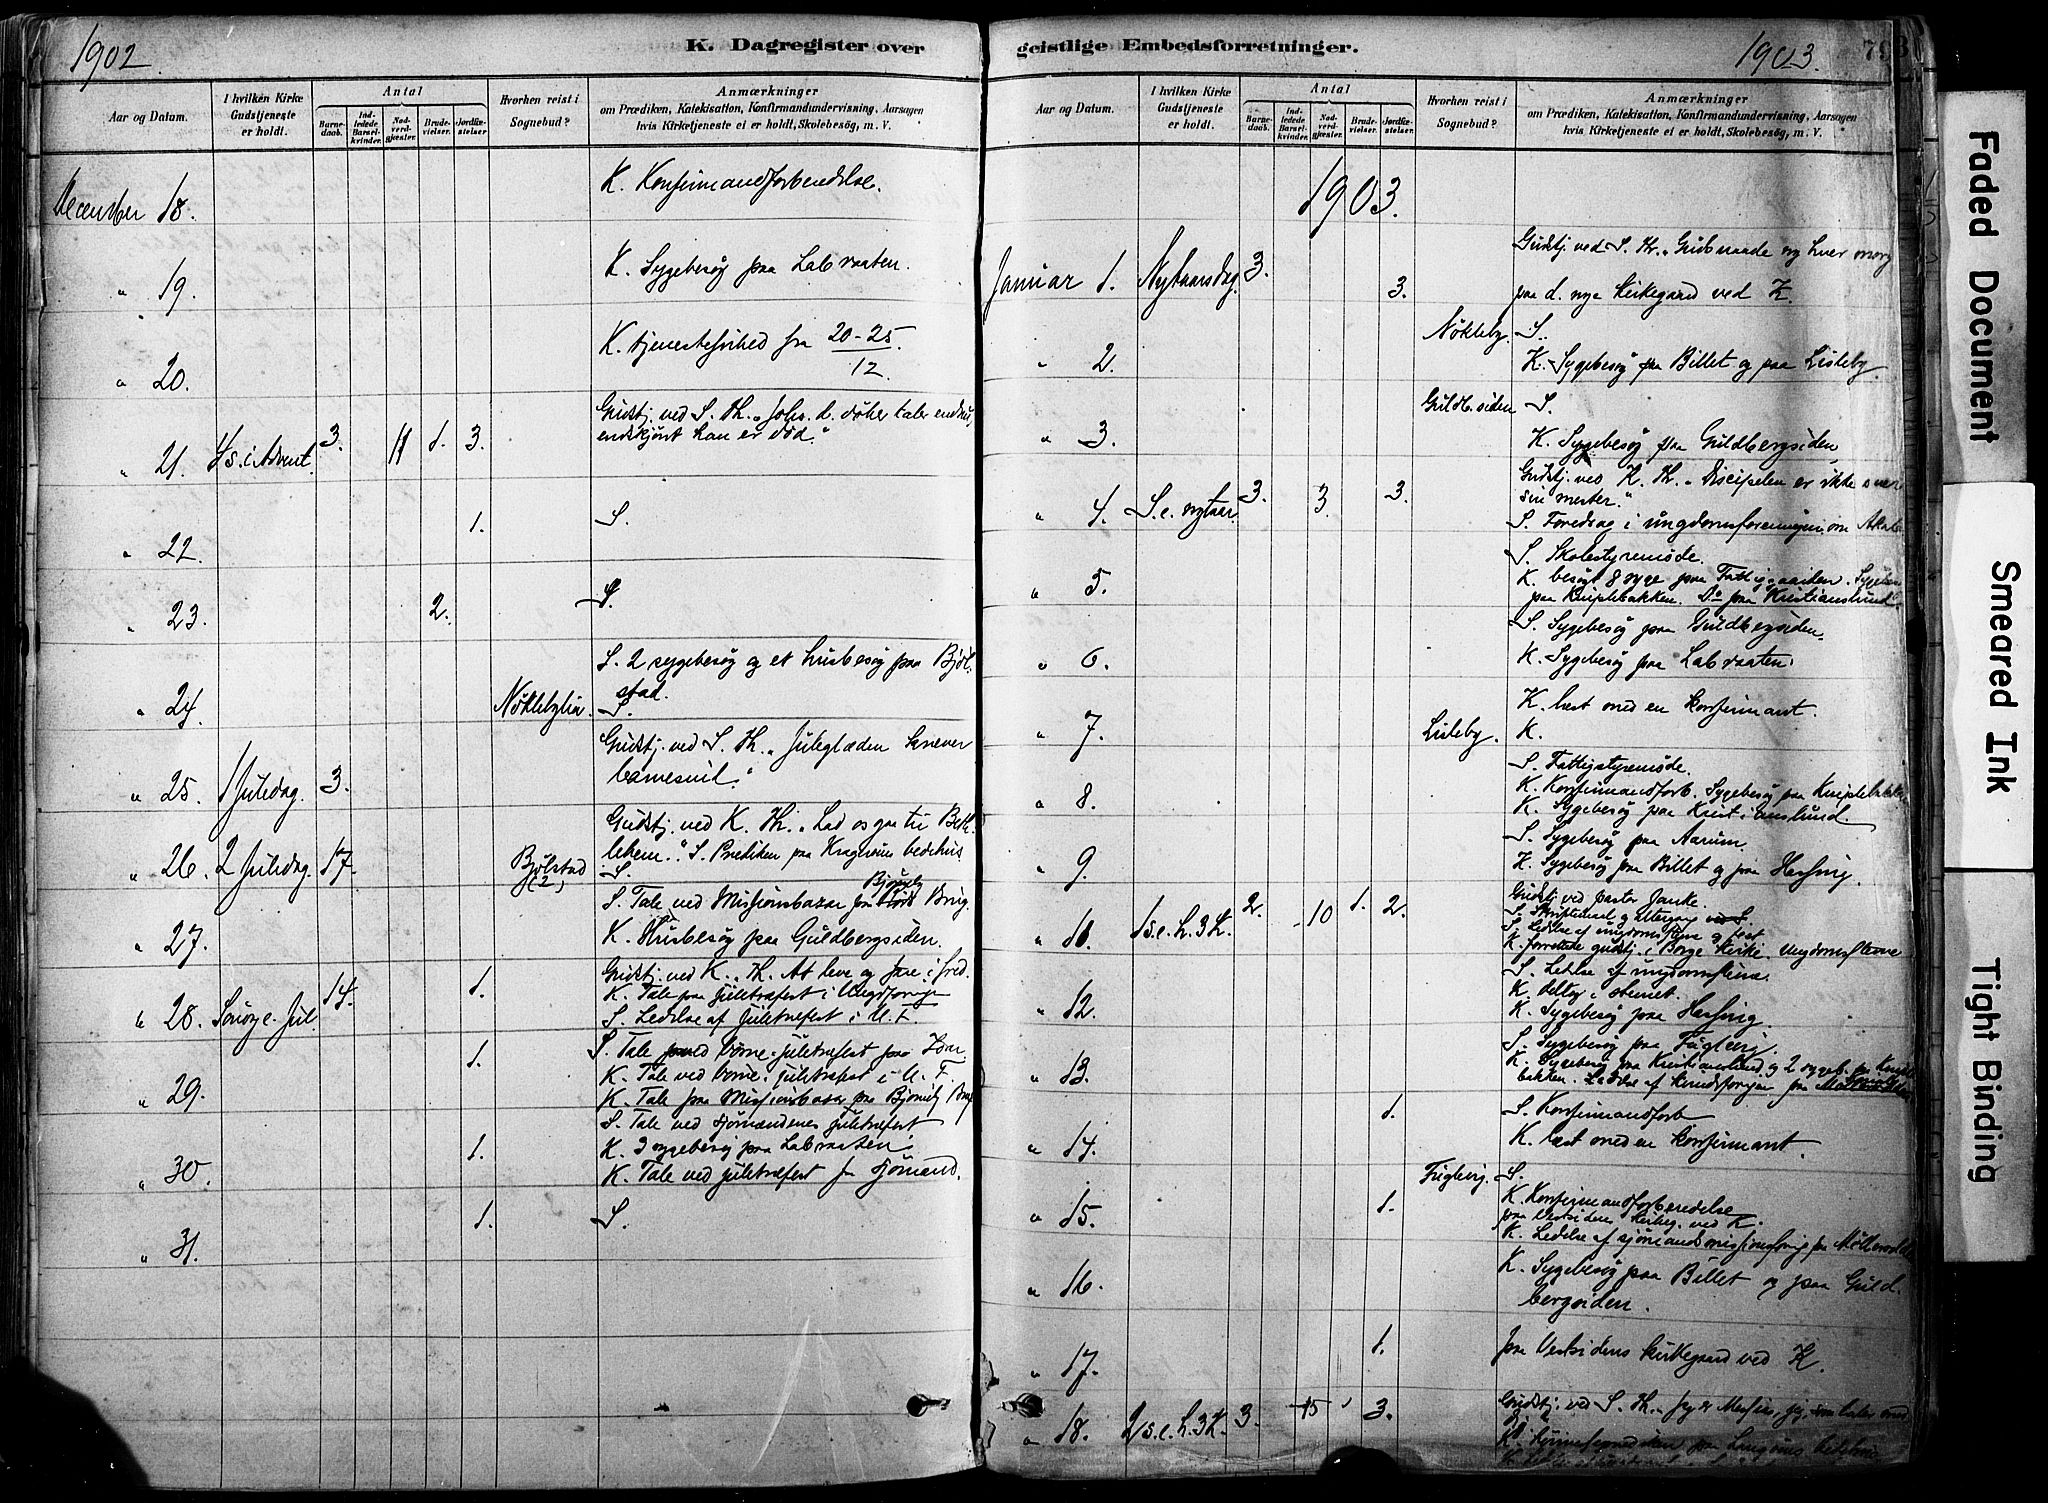 1902
K. Dagregister over
Aar og Datum.
I hvilken Kirke Gudstjeneste er holdt.
Antal
Barnedaab.
Indledede Barselkvinder.
Nadverdgjester.
Brudevielser.
Jordfæstelser.
Hvorhen reist i Sognebud?
Anmærkninger
om Prædiken, Katekisation, Konfirmandundervisning, Aarsagen
hvis Kirketjeneste ei er holdt, Skolebesøg, m. V.
December 18.
K. Konfirmandforberedelse.
" 19.
K. Sygebesøg paa Labraaten.
" 20.
K. tjenestefrihed fra 20-25/12.
" 21. 4 s. i Advent. 3. 11 1. 3.
Gudstj. ved S. Th. "Johs. d. døber taler endnu,
endskjønt han er død."
" 22. 1. S.
" 23. 2. S.
" 24.
S. 2 sygebesøg og et husbesøg paa Bjøl-
stad.
Nøklebylia. S.
" 25. 1 Juledag. 3.
Gudstj. ved S. Th. "Juleglæden kræver
barnesind."
" 26. 2 Juledag. 17.
Gudstj. ved K. Th. "Lad os gaa til Beth-
lehem." S. Prædiken paa Kragerøens bedehus
Bjølstad (2) S.
" 27.
S. Tale ved Missionsbazar paa Bjørneby Brug.
K. Husbesøg paa Guldbergsiden.
" 28. Søn. e. Jul. 14. 1.
Gudstj. ved K. Th. At leve og fare i fred.
K. Tale paa juletræfest i Ungdforen
S. Ledelse af juletræfest i U. F.
" 29. 1.
S. Tale ved børne-juletræfest paa
K. Tale ved børne-juletræfest i U. F
K. Tale paa Missionsbazar paa Bjørneby Brug
" 30. 1.
S. Tale ved sjømændenes juletræfest
K. 3 sygebesøg paa Labraaten.
K. Tale ved juletræfest for sjømænd.
" 31. 1. S.
geistlige Embedsforretninger.
1903.
793
Aar og Datum.
I hvilken Kirke Gudstjeneste er holdt.
Antal
Barnedaab.
Indledede Barselkvinder.
Nadverdgjester.
Brudevielser.
Jordfæstelser.
Hvorhen reist i Sognebud?
Anmærkninger
om Prædiken, Katekisation, Konfirmandundervisning, Aarsagen
hvis Kirketjeneste ei er holdt, Skolebesøg, m. V.
1903.
Januar 1. Nytaarsdag. 3. 3.
Gudstj. ved S. Th. "Guds naade ny hver morg
paa d. nye kirkegaard ved K.
" 2. Nøkleby. S.
K. Sygebesøg paa Billet og paa Lisleby.
" 3. Guldb. siden S.
K. Sygebesøg paa Guldbergsiden
" 4. S. e. nytaar. 3. 3. 3.
Gudstj. ved K. Th. "Discipelen er ikke over
sin mester."
S. Foredrag i ungdomsforeningen om
" 5.
S. Skolestyremøde.
K. besøgt 8 syge paa Fattiggaarden. Sygebes
paa Kniplebakken. Do paa Kristianslund.
" 6.
S. Sygebesøg paa Guldbergsiden.
K. Sygebesøg paa Labraaten.
" 7.
K. læst med en konfirmant.
Lisleby. K.
" 8.
S. Fattigstyremøde.
K. Konfirmandforb. Sygebesøg paa Kniplebakken
K. Sygebesøg paa Kristianslund.
" 9.
S. Sygebesøg paa Aarum.
K. Sygebesøg paa Billet og paa Hassing.
" 11. 1 s. e. h. 3 K. 2. 10 1. 2.
Gudstj. ved pastor Janke.
S. Skriftemaal og altergang
S. Ledelse af ungdomsstevne og fest
K. forrettede gudstj. i Borge kirke. Ungdomsstevne
" 12.
S. Ledelse af ungdomsstevne.
K. deltog i stevnet.
K. Sygebesøg paa Hassing
" 13.
S. Sygebesøg paa Fuglevig.
K. Sygebesøg paa Kristianslund og 2 sygeb. paa Kniple-
bakken.
" 14. 1.
S. Konfirmandforb
K. læst med en konfirmant.
" 15. 1. Fuglevig. S.
K. Konfirmandforberedelse
paa Vestsidens kirkeg. ved K.
K. Ledelse af sjømandsmissionsforening paa
" 16.
K. Sygebesøg paa Billet og paa Guld-
bergsiden.
" 17. 1.
paa Vestsidens kirkegaard ved K
" 18. 2 s. e. h. 3 K. 3. 15 3.
Gudstj. ved S. Th. "Jeg er Messias, jeg, som taler med
dig."
Faded Document
Smeared Ink
Tight Binding